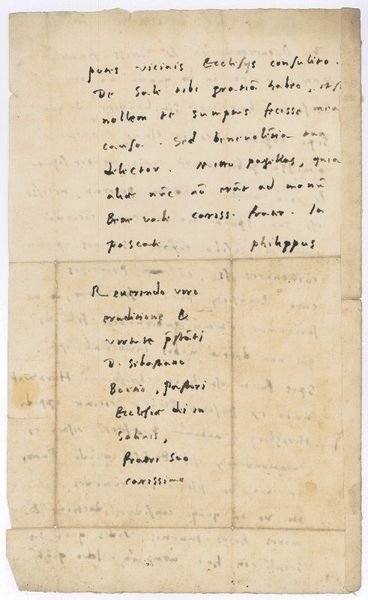 puris vicinis Ecclesijs consulito.
De Sale tibi gratiā habeo, etsi
nollem te sumptus fecisse mea
causa. Sed benevolētia tua
delector. Mitto pagellas, quia
aliæ nūc nō erāt ad manū
Bene vale cariss. frater. In
philippus
Reuerendo viro
eruditione &
virtute p̄stāti
D. Sebastiano
Boetio, pastori
Ecclesiæ dei in
Salinis,
fratri suo
carissimo